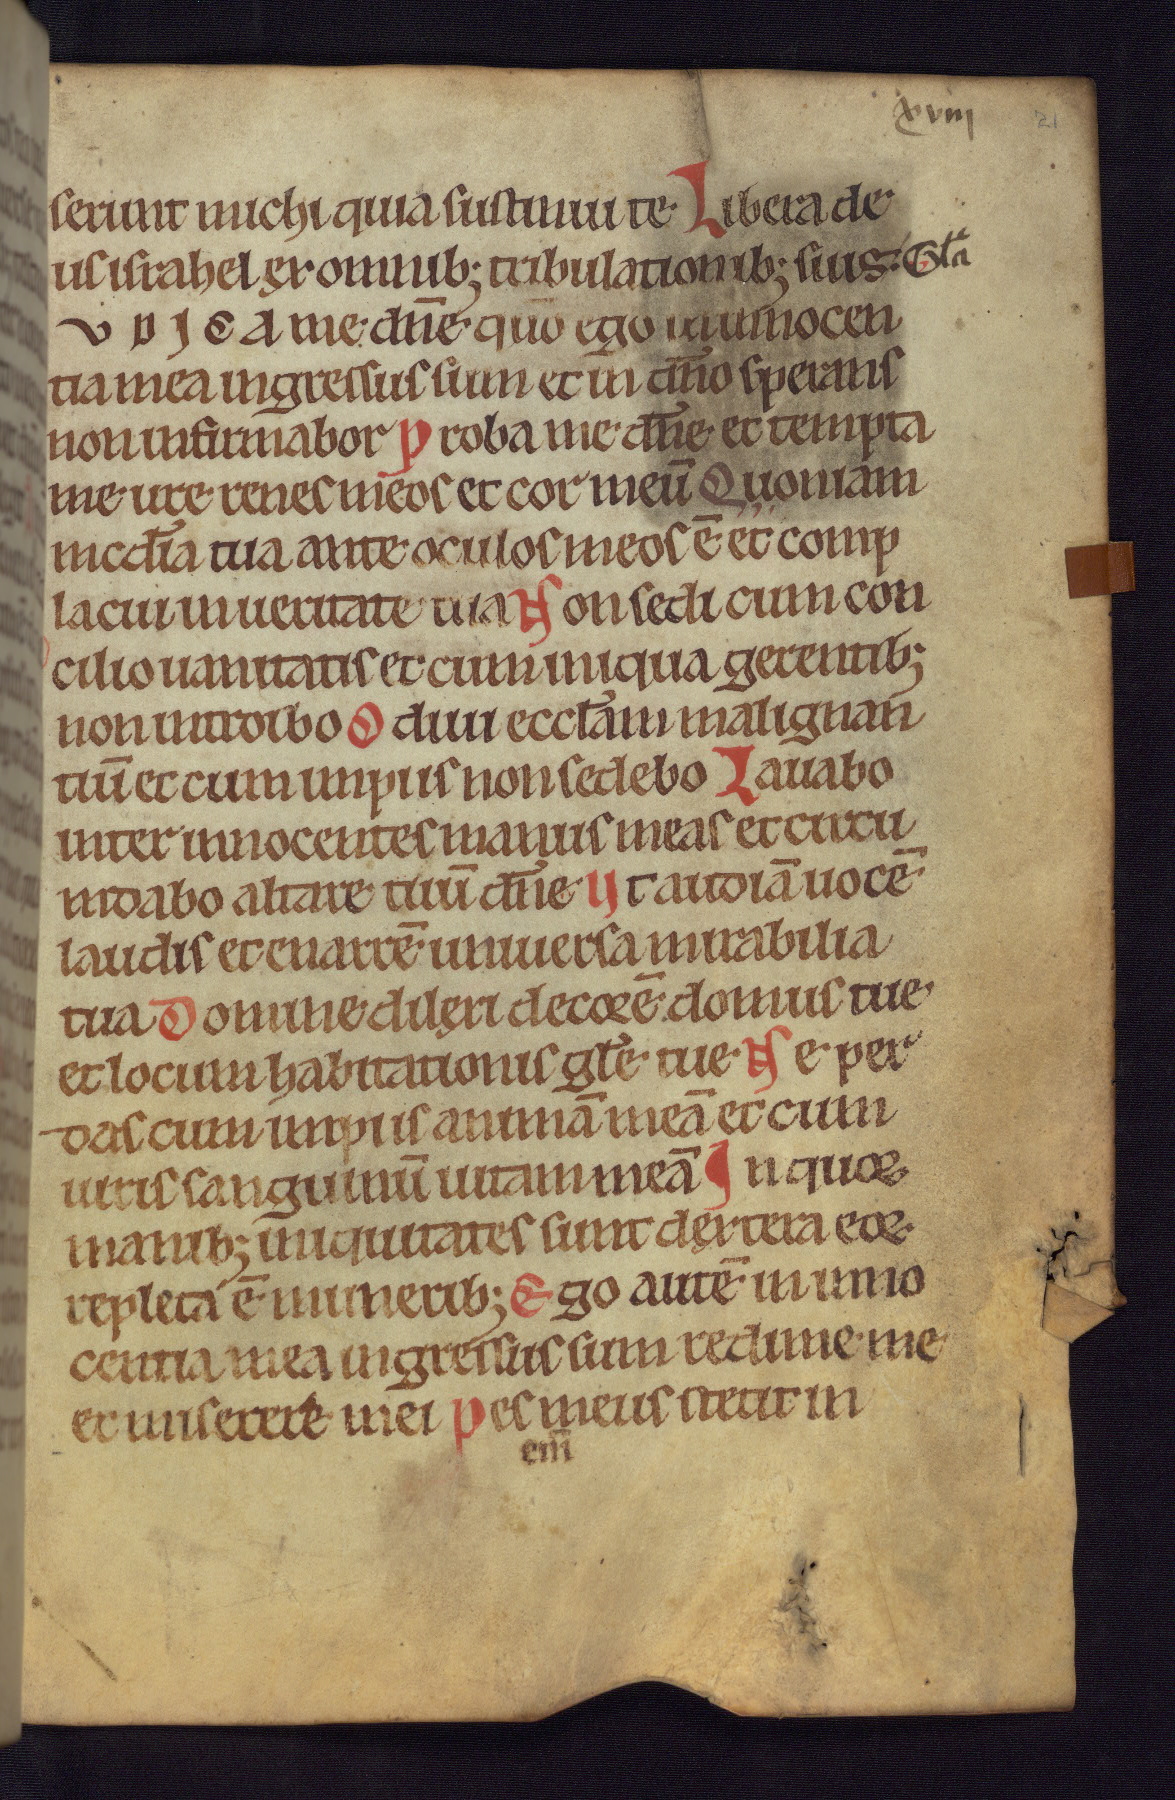 xviij 21
serunt michi quia sustinui te Libera de
us israhel ex omnib; tribulationib; suis. Gl̄a
VDICA me dn̄e qūo ego in innocen
tia mea ingressus sum et in dn̄o sperans
non infirmabor Proba me dn̄e et tempta
me ure renes meos et cor meū Quoniam
mcd̄ia tua ante oculos meos ē et comp
lacui in ueritate tua Non sedi cum con
cilio uanitatis et cum iniqua gerentib;
non introibo Odiui eccl̄am malignan
tiū et cum impiis non sedebo Lauabo
inter innocentes manus meas et circu
mdabo altare tuū dn̄e Ut audiā uocē
laudis et enarrē uniuersa mirabilia
tua Domine dilexi decorē domus tue
et locum habitationis gl̄e tue Ne per
das cum impiis animā meā et cum
uiris sanguinū uitam meā In quoꝝ
manib; iniquitates sunt dextera eoꝝ
repleta ē munerib; Ego autē in inno
centia mea ingressus sum redime me
et miserere mei Pes meus stetit in
em̄